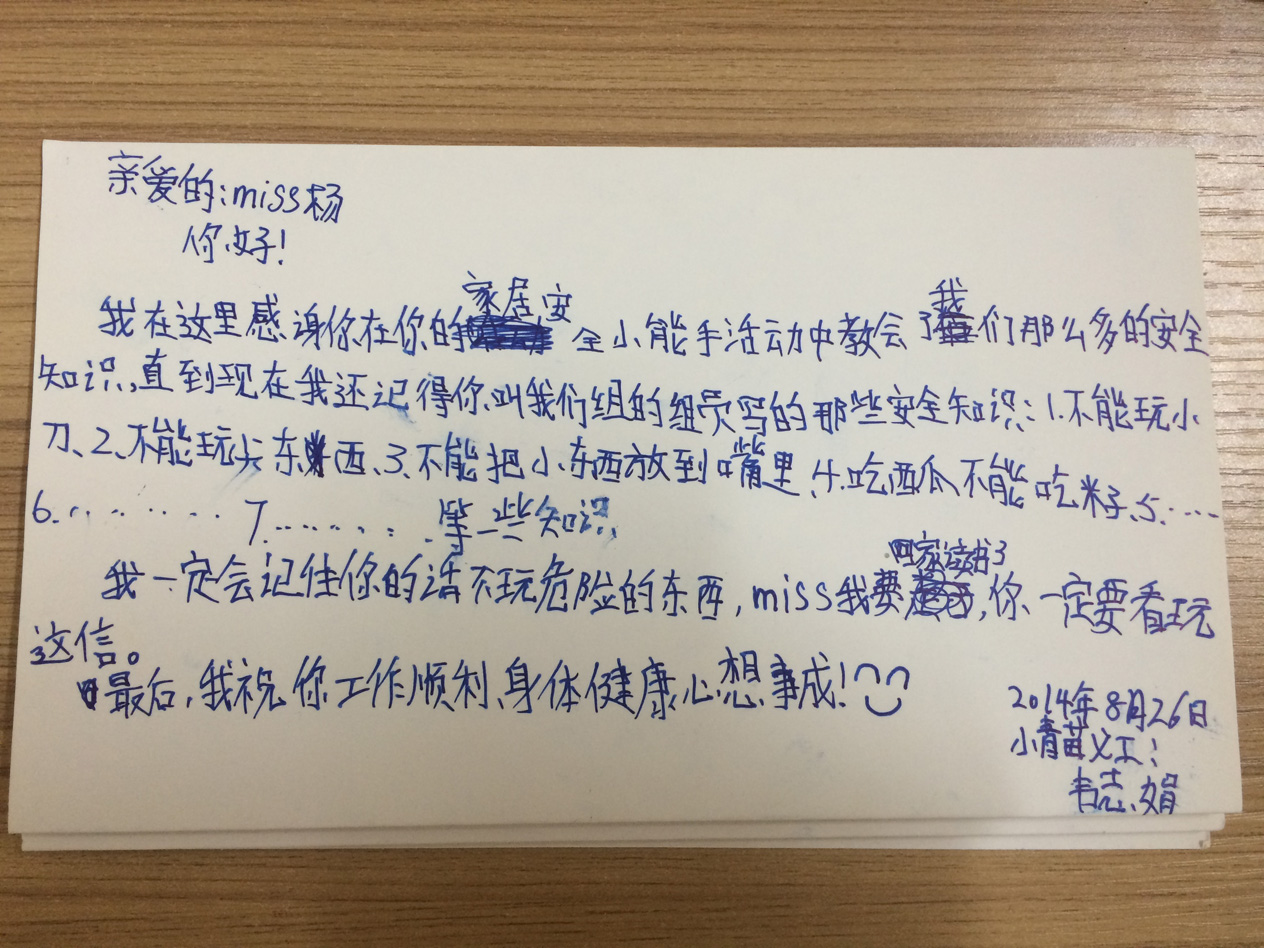 亲爱的:miss杨
你好!
我在这里感谢你在你的家居安全小能手活动中教会了我们那么多的安全
知识,直到现在我还记得你叫我们组的组员写的那些安全知识:1.不能玩小
刀、2、不能玩尖东西、3、不能把小东西放到嘴里、4.吃西瓜不能吃籽、5.……
6.……… 7.……… 等一些知识
我一定会记住你的话不玩危险的东西,miss我要回家读书了,你一定要看玩
这信。
最后,我祝你工作顺利、身体健康、心想事成!
2014年8月26日
小青苗义工:
韦志娟